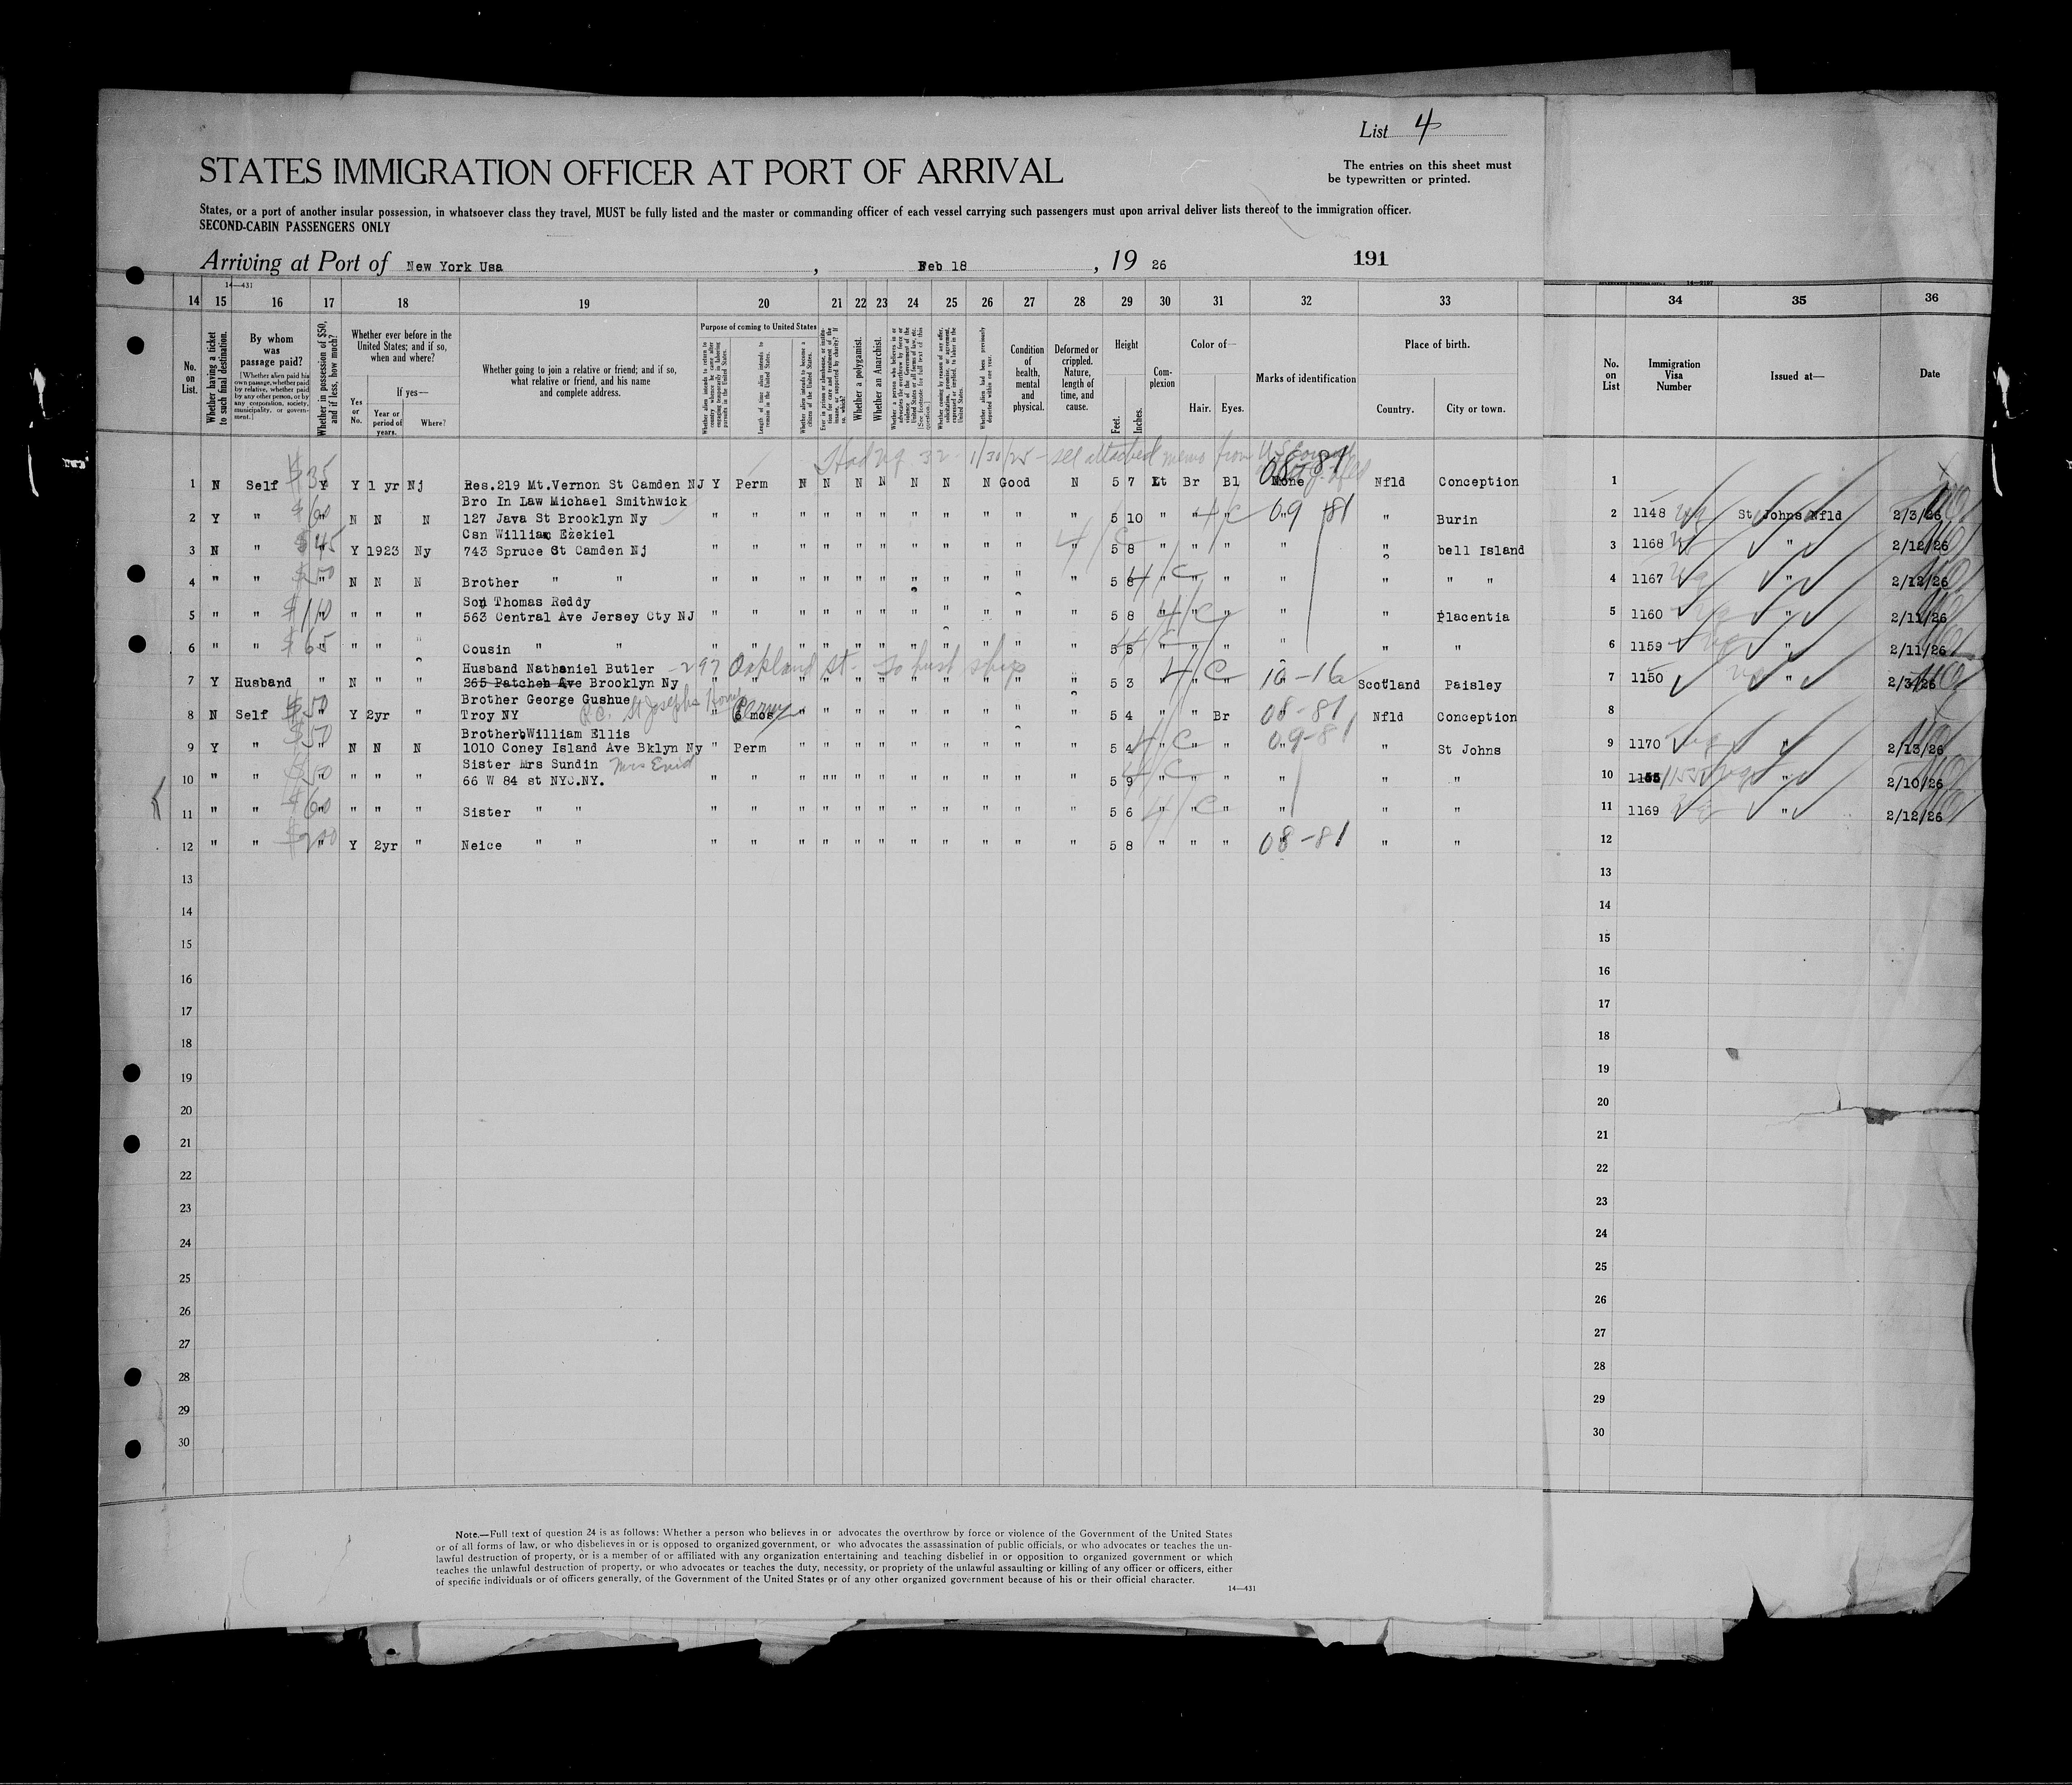 List 4
STATES IMMIGRATION OFFICER AT PORT OF ARRIVAL
The entries on this sheet must
be typewritten or printed.
States, or a port of another insular possession, in whatsoever class they travel, MUST be fully listed and the master or commanding officer of each vessel carrying such passengers must upon arrival deliver lists thereof to the immigration officer.
SECOND-CABIN PASSENGERS ONLY
Arriving at Port of New York Usa , Feb 18 , 19 26 191
14—431
14 15 16 17 18 19 20 21 22 23 24 25 26 27 28 29 30 31 32 33 34 35 36
No. on List.
Whether having a ticket to such final destination.
By whom was passage paid?
[Whether alien paid his own passage, whether paid by relative, whether paid by any other person, or by any corporation, society, municipality, or government.]
Whether in possession of $50, and if less, how much?
Whether ever before in the United States; and if so, when and where?
Yes or No.
If yes—
Year or period of years.
Where?
Whether going to join a relative or friend; and if so, what relative or friend, and his name and complete address.
Purpose of coming to United States
Length of time alien intends to remain in the United States.
Whether alien intends to become a citizen of the United States.
Whether a polygamist.
Whether an Anarchist.
Condition of health, mental and physical.
Deformed or crippled. Nature, length of time, and cause.
Height
Feet. Inches.
Complexion
Color of—
Hair. Eyes.
Marks of identification
Place of birth.
Country. City or town.
No. on List
Immigration Visa Number
Issued at—
Date
Had 32 - 1/30/25 - see attached memo from US
1 N Self $35 Y Y 1 yr Nj Res.219 Mt.Vernon St Camden NJ Y Perm N N N N N N N Good N 5 7 Lt Br Bl None 08-81 Nfld Conception 1
Bro In Law Michael Smithwick
2 Y " $60 " N N N 127 Java St Brooklyn Ny " " " " " " " " " " " 5 10 " " " 09-81 " Burin 2 1148 St Johns Nfld 2/3/26
Csn William Ezekiel
3 N " $45 " Y 1923 Ny 743 Spruce St Camden Nj " " " " " " " " " " " 5 8 " " " " " bell Island 3 1168 " 2/12/26
4 " " $50 " N N N Brother " " " " " " " " " " " " " 5 8 " " " " " " " 4 1167 " 2/12/26
Son Thomas Reddy
5 " " $110 " " " " 563 Central Ave Jersey Cty NJ " " " " " " " " " " " 5 8 " " " " " Placentia 5 1160 " 2/11/26
6 " " $65 " " " " Cousin " " " " " " " " " " " " " 5 5 " " " " " " 6 1159 " 2/11/26
Husband Nathaniel Butler - 297 Oakland St. - To husb ship
7 Y Husband " N " " 265 Patchen Ave Brooklyn Ny " " " " " " " " " " " 5 3 " " " 10-16 Scotland Paisley 7 1150 " 2/3/26
Brother George Gushue
8 N Self $50 Y 2yr " Troy NY R.C. St Josephs Home " 6 mos Perm " " " " " " " " " 5 4 " " Br 08-81 Nfld Conception 8
Brother William Ellis
9 Y " $50 " N N N 1010 Coney Island Ave Bklyn Ny " Perm " " " " " " " " " 5 4 " " " 09-81 " St Johns 9 1170 " 2/13/26
Sister Mrs Sundin Mrs Enid
10 " " $50 " " " " 66 W 84 st NYC.NY. " " " "" " " " " " " " 5 9 " " " " " " 10 1155 " 2/10/26
11 " " $60 " " " " Sister " " " " " " " " " " " " " 5 6 " " " " " " 11 1169 " 2/12/26
12 " " $200 " Y 2yr " Neice " " " " " " " " " " " " " 5 8 " " " 08-81 " " 12
13 13
14 14
15 15
16 16
17 17
18 18
19 19
20 20
21 21
22 22
23 23
24 24
25 25
26 26
27 27
28 28
29 29
30 30
Note.—Full text of question 24 is as follows: Whether a person who believes in or advocates the overthrow by force or violence of the Government of the United States
or of all forms of law, or who disbelieves in or is opposed to organized government, or who advocates the assassination of public officials, or who advocates or teaches the un-
lawful destruction of property, or is a member of or affiliated with any organization entertaining and teaching disbelief in or opposition to organized government or which
teaches the unlawful destruction of property, or who advocates or teaches the duty, necessity, or propriety of the unlawful assaulting or killing of any officer or officers, either
of specific individuals or of officers generally, of the Government of the United States or of any other organized government because of his or their official character.
14—431